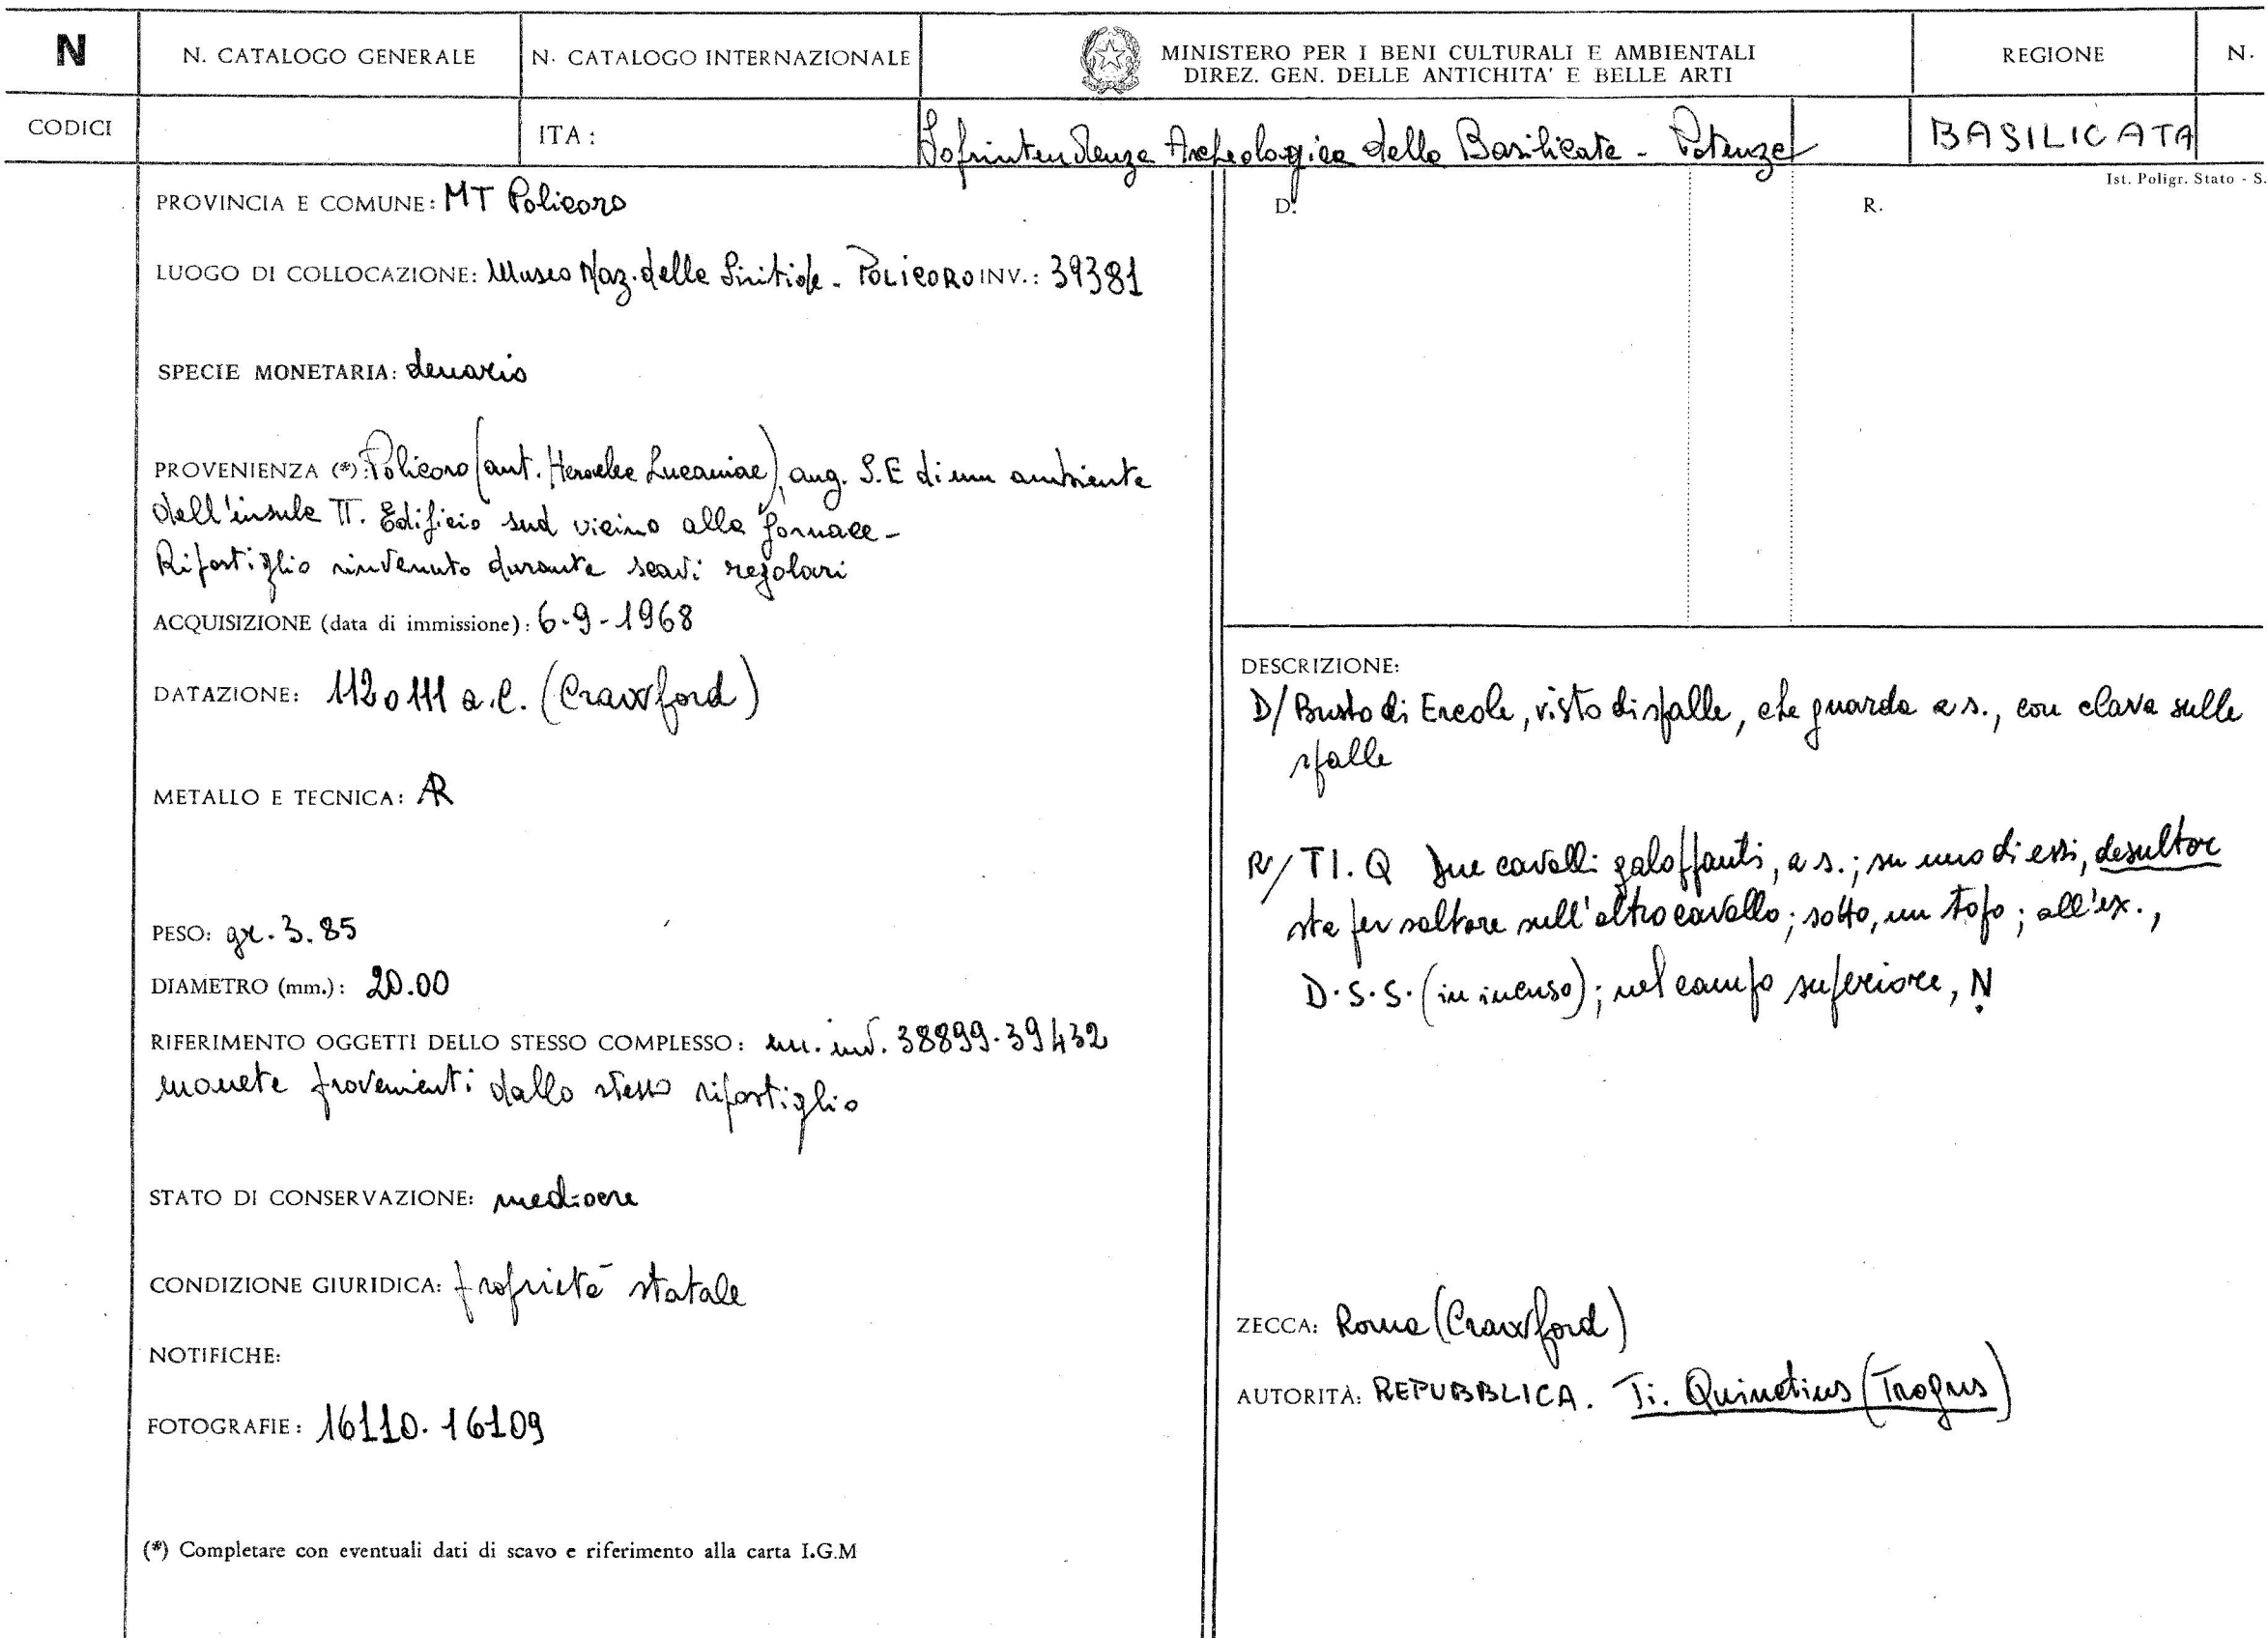 N
N. CATALOGO GENERALE
N. CATALOGO INTERNAZIONALE
MINISTERO PER I BENI CULTURALI E AMBIENTALI
DIREZ. GEN. DELLE ANTICHITA' E BELLE ARTI
REGIONE
N.
CODICI
ITA:
Soprintendenza Archeologica della Basilicata - Potenza
BASILICATA
Ist. Poligr. Stato - S.
PROVINCIA E COMUNE: MT Policoro
LUOGO DI COLLOCAZIONE: Museo Naz. della Siritide - POLICORO INV.: 39381
SPECIE MONETARIA: denario
PROVENIENZA (*): Policoro (ant. Heraclea Lucaniae), ang. S.E di un ambiente
dell'insula II. Edificio sud vicino alla fornace -
Ripostiglio rinvenuto durante scavi regolari
ACQUISIZIONE (data di immissione): 6-9-1968
DATAZIONE: 112 o 111 a.C. (Crawford)
METALLO E TECNICA: AR
PESO: gr. 3.85
DIAMETRO (mm.): 20.00
RIFERIMENTO OGGETTI DELLO STESSO COMPLESSO: nn. inv. 38899-39432
monete provenienti dallo stesso ripostiglio
STATO DI CONSERVAZIONE: mediocre
CONDIZIONE GIURIDICA: proprietà statale
NOTIFICHE:
FOTOGRAFIE: 16110-16109
(*) Completare con eventuali dati di scavo e riferimento alla carta I.G.M
D.
R.
DESCRIZIONE:
D/ Busto di Ercole, visto di spalle, che guarda a s., con clava sulle
spalle
R/ TI. Q Due cavalli galoppanti, a s.; su uno di essi, desultor
sta per saltare sull'altro cavallo; sotto, un topo; all'ex.,
D.S.S. (in incuso); nel campo superiore, Ṇ
ZECCA: Roma (Crawford)
AUTORITÀ: REPUBBLICA. Ti. Quinctius (Trogus)